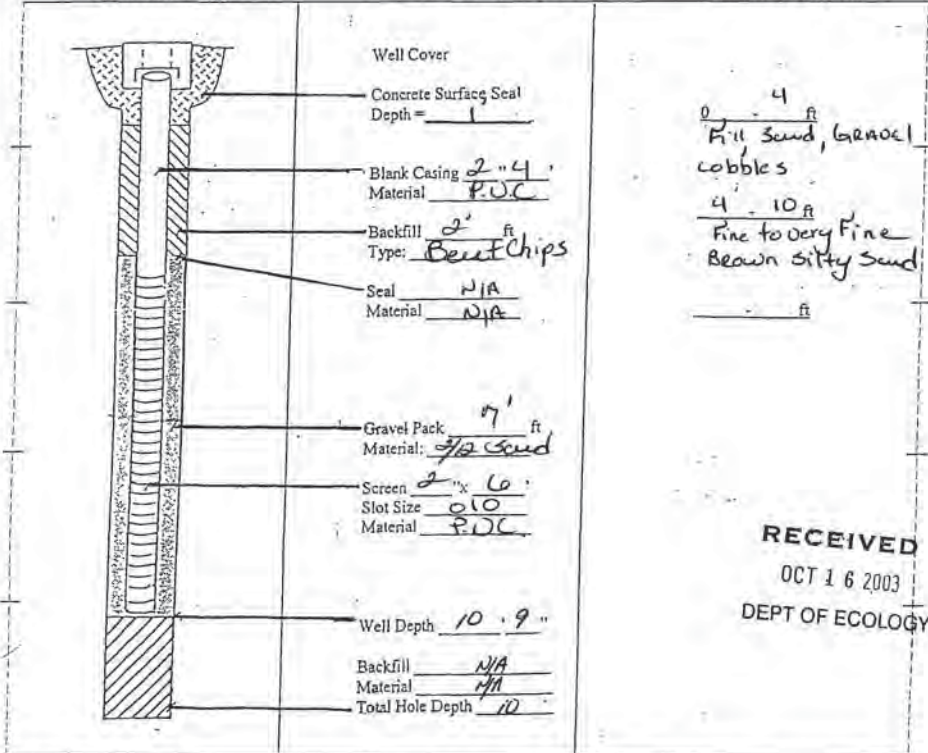 Well Cover
Concrete Surface Seal
Depth = 1
Blank Casing 2 " 4 '
Material P.V.C
Backfill 2' ft
Type: Bent Chips
Seal N/A
Material N/A
Gravel Pack 7' ft
Material: 2/12 Sand
Screen 2 "x 6 '
Slot Size 010
Material P.V.C.
Well Depth 10 ' 9 "
Backfill N/A
Material N/A
Total Hole Depth 10
0 - 4 ft
Fill Sand, GRAVEl
cobbles
4 - 10 ft
Fine to very Fine
Brown Silty Sand
- ft
RECEIVED
OCT 16 2003
DEPT OF ECOLOGY